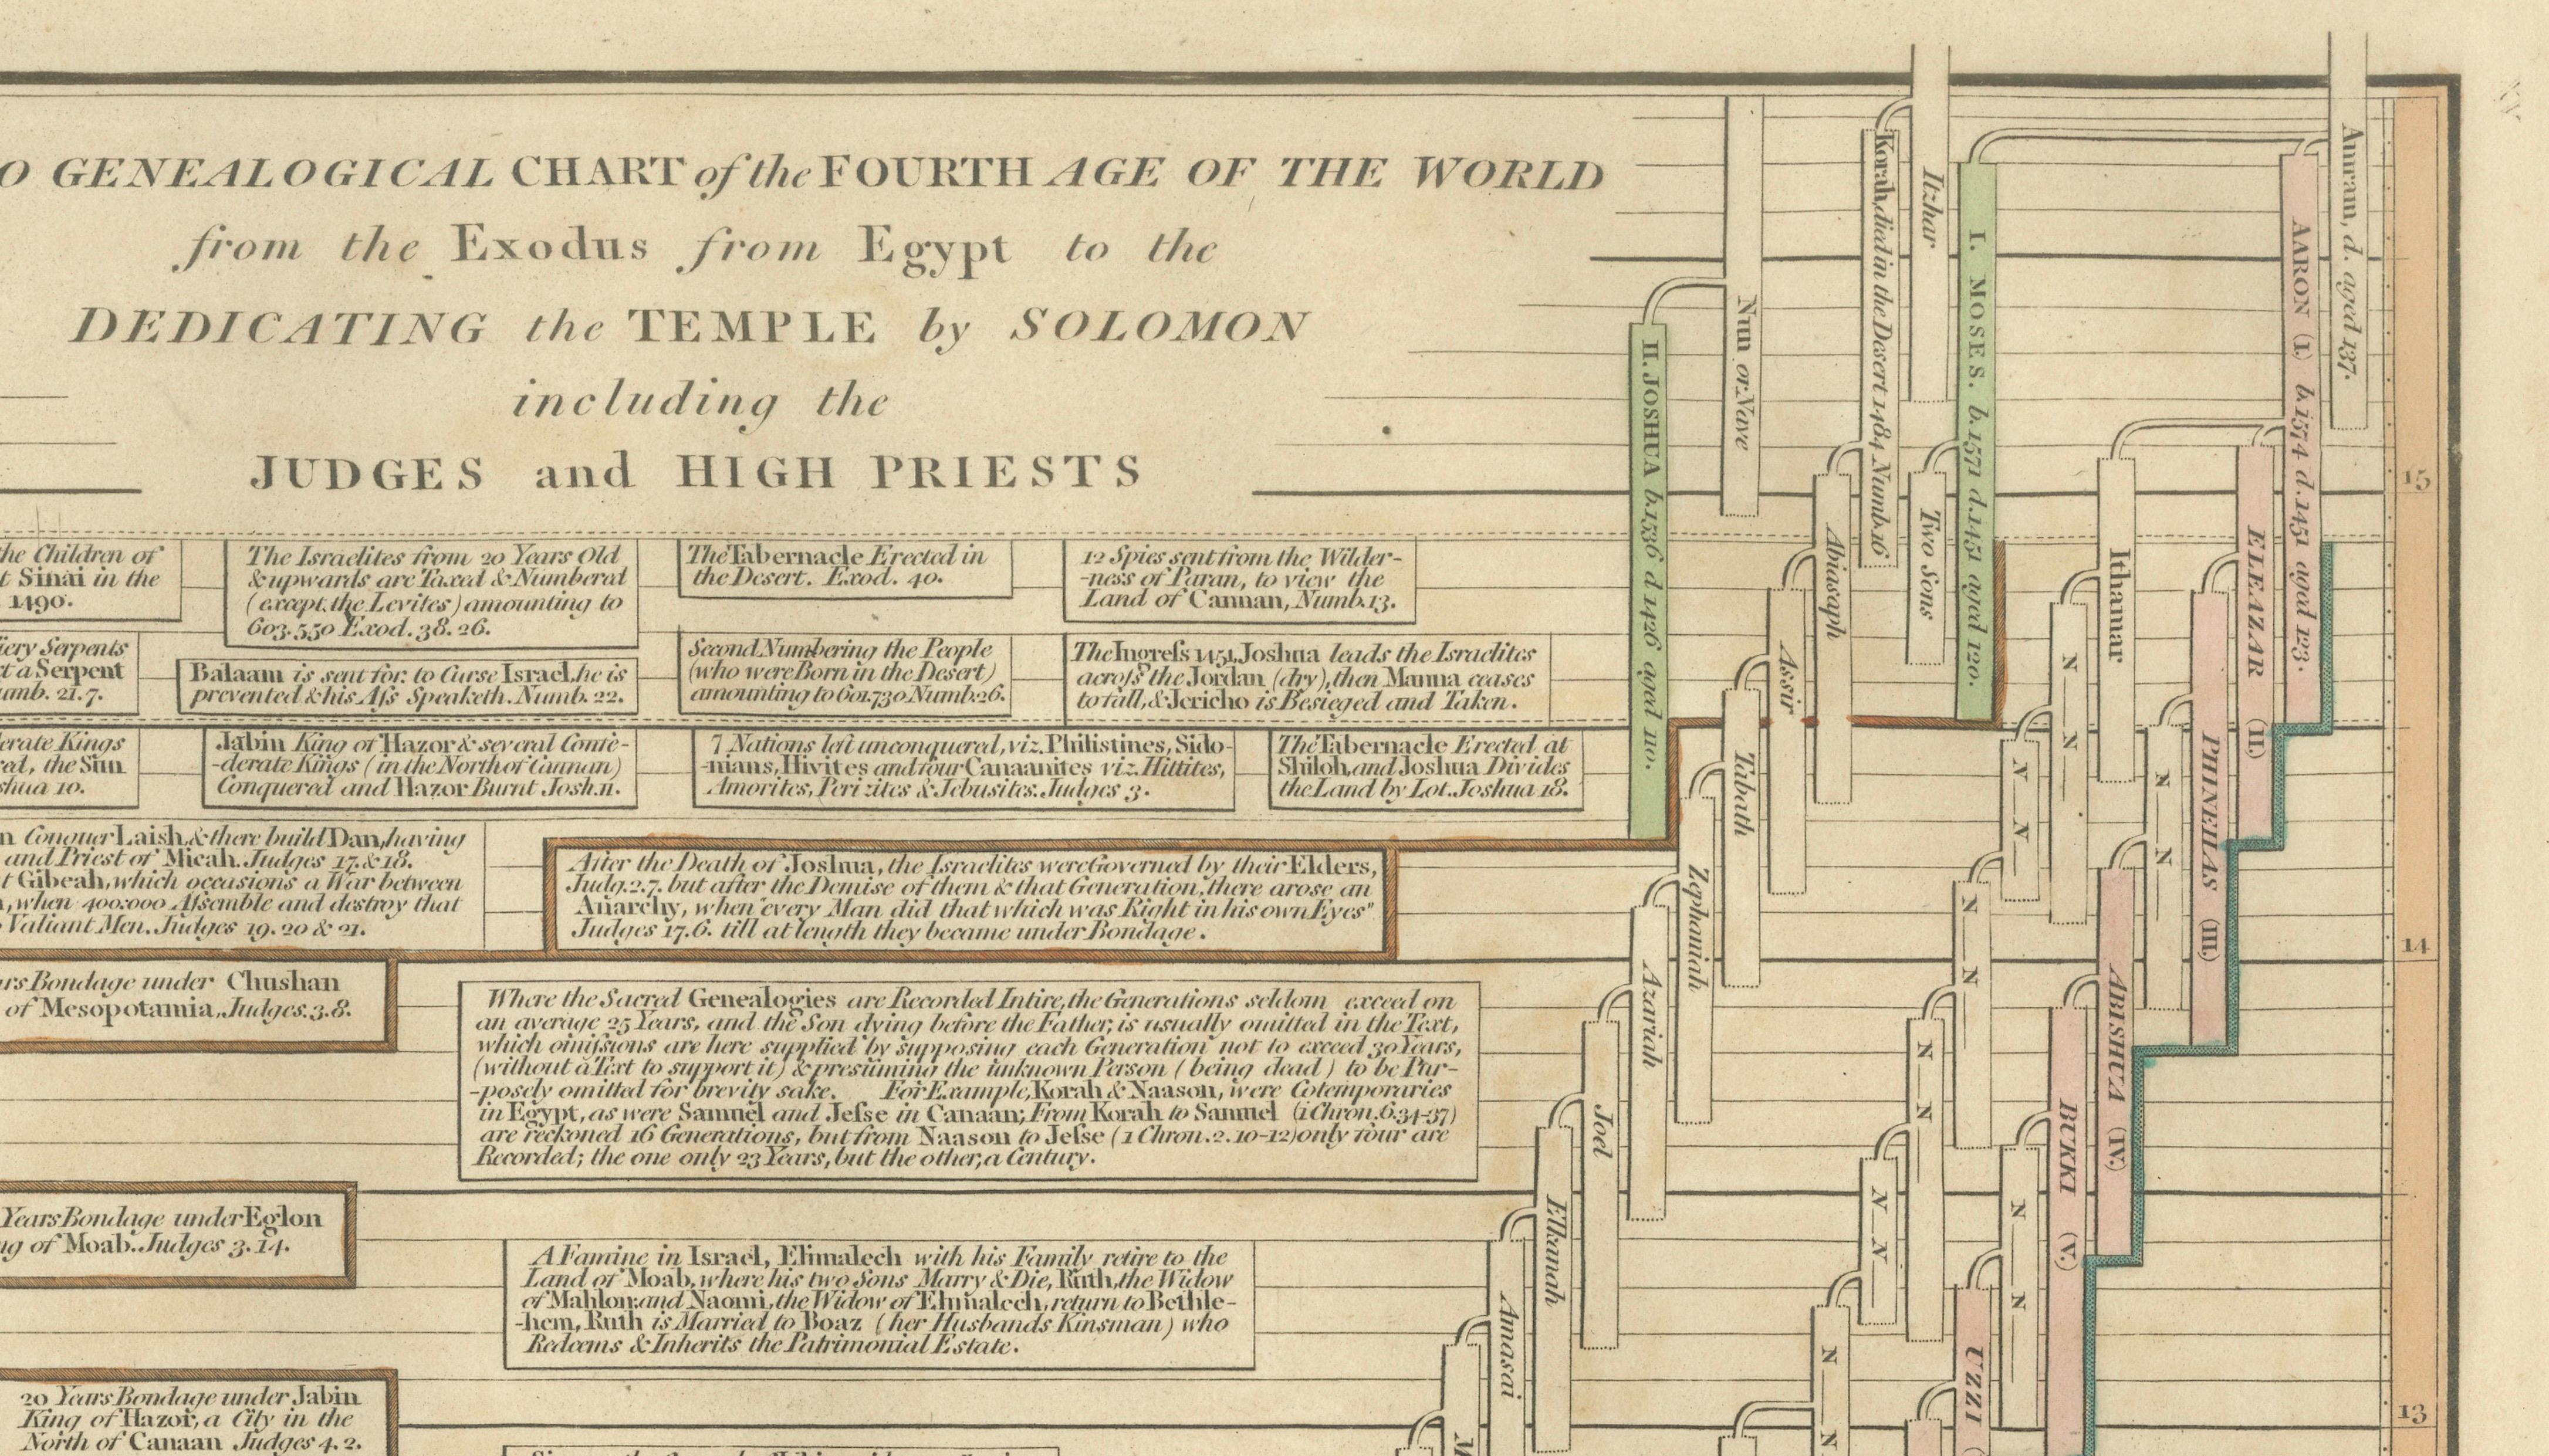 O GENEALOGICAL CHART of the FOURTH AGE OF THE WORLD
from the Exodus from Egypt to the
DEDICATING the TEMPLE by SOLOMON
including the
JUDGES and HIGH PRIESTS
he Children of
t Sinai in the
1490.
The Israelites from 20 Years Old
& upwards are Taxed & Numbered
(except the Levites) amounting to
603.550 Exod. 38. 26.
The Tabernacle Erected in
the Desert. Exod. 40.
12 Spies sent from the Wilder-
-ness of Paran, to view the
Land of Cannan, Numb. 13.
iery Serpents
t a Serpent
umb. 21. 7.
Balaam is sent for to Curse Israel, he is
prevented & his Aſs Speaketh. Numb. 22.
Second Numbering the People
(who were Born in the Desert)
amounting to 601.730 Numb. 26.
The Ingreſs 1451, Joshua leads the Israelites
acroſs the Jordan (dry), then Manna ceases
to fall, & Jericho is Besieged and Taken.
erate Kings
ed, the Sun
shua 10.
Jabin King of Hazor & several Confe-
-derate Kings (in the North of Cannan)
Conquered and Hazor Burnt Josh. 11.
7 Nations left unconquered, viz. Philistines, Sido-
-nians, Hivites and four Canaanites viz. Hittites,
Amorites, Perizites & Jebusites. Judges 3.
The Tabernacle Erected at
Shiloh, and Joshua Divides
the Land by Lot. Joshua 18.
n Conquer Laish, & there build Dan, having
and Priest of Micah. Judges 17. & 18.
t Gibeah, which occasions a War between
, when 400.000 Aſsemble and destroy that
Valiant Men. Judges 19. 20 & 21.
After the Death of Joshua, the Israelites were Governed by their Elders,
Judg. 2. 7. but after the Demise of them & that Generation, there arose an
Anarchy, when "every Man did that which was Right in his own Eyes"
Judges 17. 6. till at length they became under Bondage.
rs Bondage under Chushan
of Mesopotamia, Judges. 3. 8.
Where the Sacred Genealogies are Recorded Intire, the Generations seldom exceed on
an average 25 Years, and the Son dying before the Father, is usually omitted in the Text,
which omiſsions are here supplied by supposing each Generation not to exceed 30 Years,
(without a Text to support it) & presuming the unknown Person (being dead) to be Pur-
-posely omitted for brevity sake. For Example, Korah & Naason, were Cotemporaries
in Egypt, as were Samuel and Jeſse in Canaan; From Korah to Samuel (1 Chron. 6. 34-37)
are reckoned 16 Generations, but from Naason to Jeſse (1 Chron. 2. 10-12) only four are
Recorded; the one only 23 Years, but the other, a Century.
Years Bondage under Eglon
ng of Moab. Judges 3. 14.
A Famine in Israel, Elimalech with his Family retire to the
Land of Moab, where his two Sons Marry & Die, Ruth, the Widow
of Mahlon: and Naomi, the Widow of Elimalech, return to Bethle-
-hem, Ruth is Married to Boaz (her Husbands Kinsman) who
Redeems & Inherits the Patrimonial Estate.
20 Years Bondage under Jabin
King of Hazor, a City in the
North of Canaan Judges 4. 2.
II. JOSHUA b. 1536 d 1426 aged 110.
Nun or Nave
Korah, died in the Desert 1484 Numb. 16
Izhar
I. MOSES. b. 1571 d. 1451 aged 120.
AARON (I.) b. 1574 d. 1451 aged 123.
Amram, d. aged 137.
Abiasaph
Two Sons
Ithamar
ELEAZAR (II.)
Assir
N N
PHINEHAS (III.)
Tabath
N N
N N
Zephaniah
N N
ABISHUA (IV.)
Azariah
N N
BUKKI (V.)
Joel
N N
N N
Elkanah
Amasai
N N
UZZI
M
15
14
13